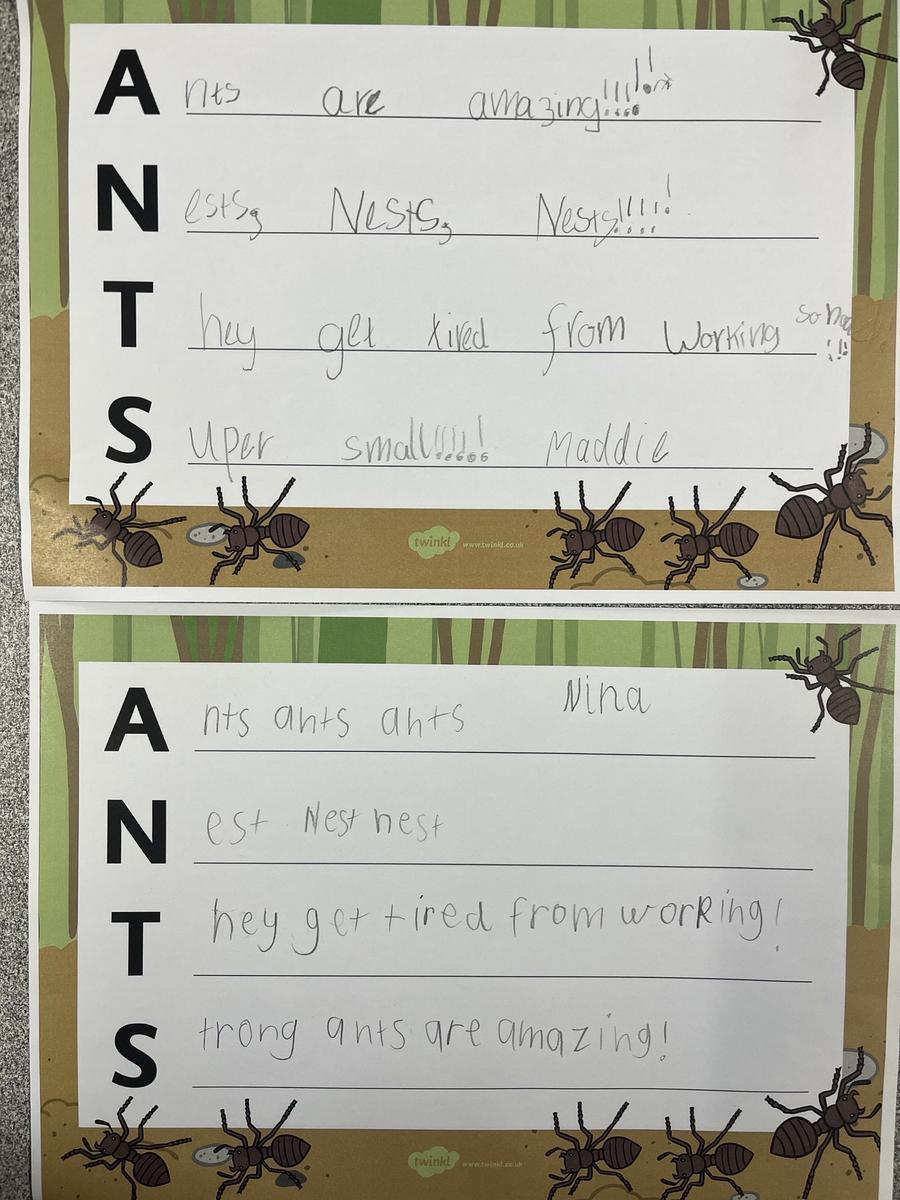 Ants are amazing!!!!!!!
Nests, Nests, Nests!!!!!!
They get tired from working so
!!!
Super small!!!!!! Maddie
twinkl www.twinkl.co.uk
Nina
Ants ants ants
Nest Nest nest
They get tired from working!
Strong ants are amazing!
twinkl www.twinkl.co.uk